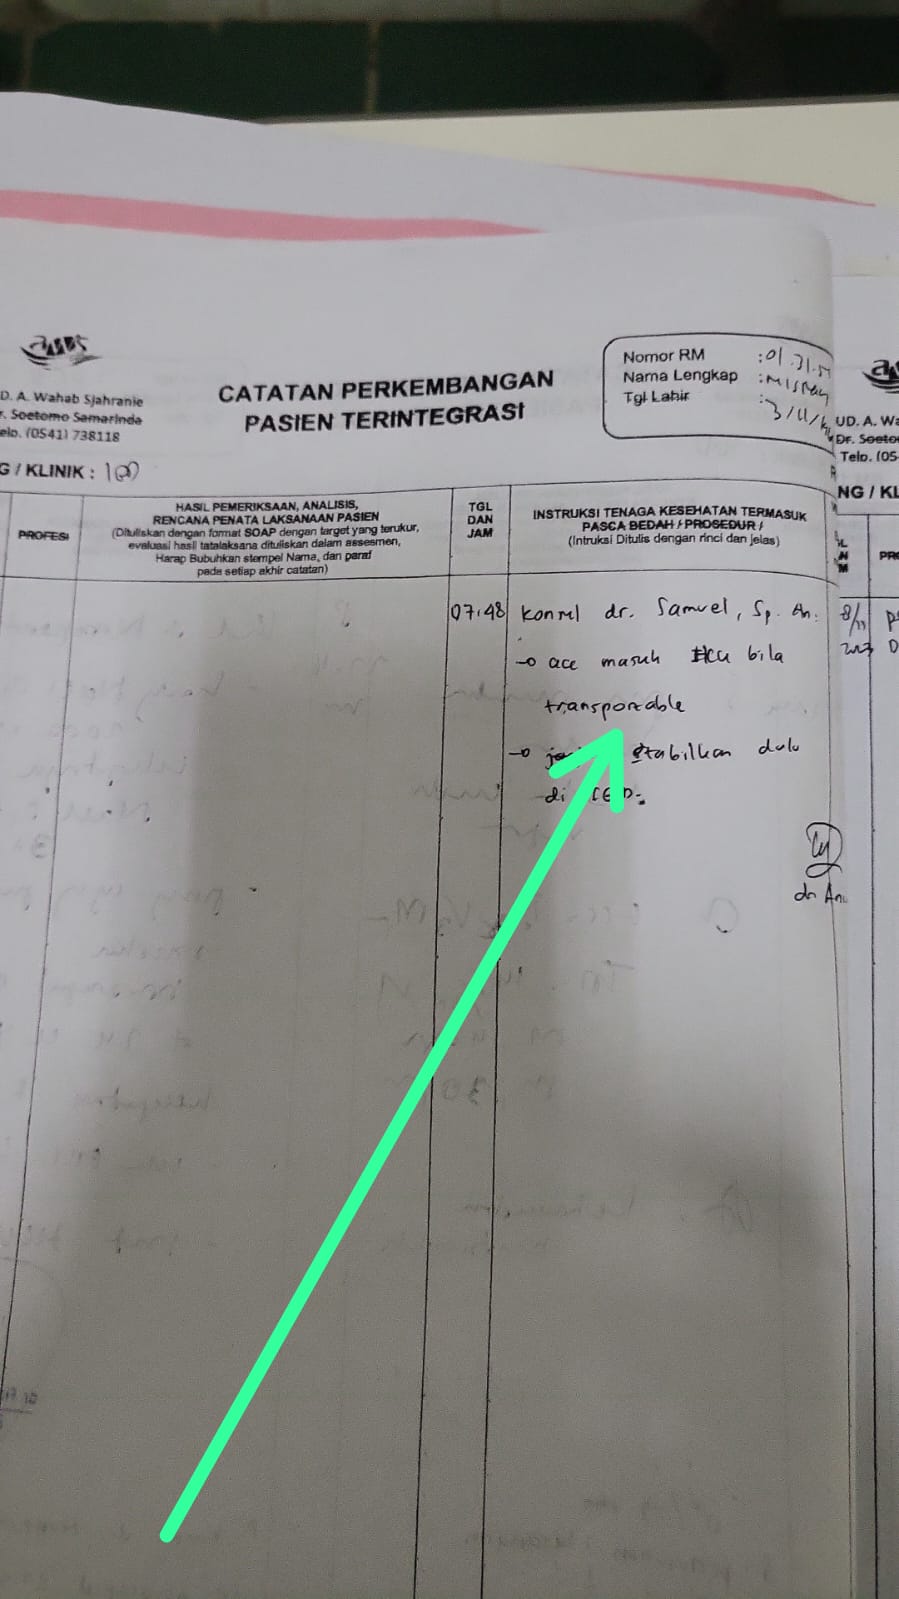 D. A. Wahab Sjahranie
r. Soetomo Samarinda
elp. (0541) 738118
G / KLINIK : IGD
CATATAN PERKEMBANGAN
PASIEN TERINTEGRASI
Nomor RM : 01.31.
Nama Lengkap :
Tgl Lahir : 3/11/
PROFESI
HASIL PEMERIKSAAN, ANALISIS,
RENCANA PENATA LAKSANAAN PASIEN
(Dituliskan dengan format SOAP dengan target yang terukur,
evaluasi hasil tatalaksana dituliskan dalam assesmen,
Harap Bubuhkan stempel Nama, dan paraf
pada setiap akhir catatan)
TGL
DAN
JAM
INSTRUKSI TENAGA KESEHATAN TERMASUK
PASCA BEDAH / PROSEDUR /
(Intruksi Ditulis dengan rinci dan jelas)
07.48 Konsul dr. Samuel, Sp. An.
acc masuk ICU bila
transportable
stabilkan dulu
di
dr
UD. A. Wa
Dr. Soeto
Telp. (05
NG / KL
PRO
8/11